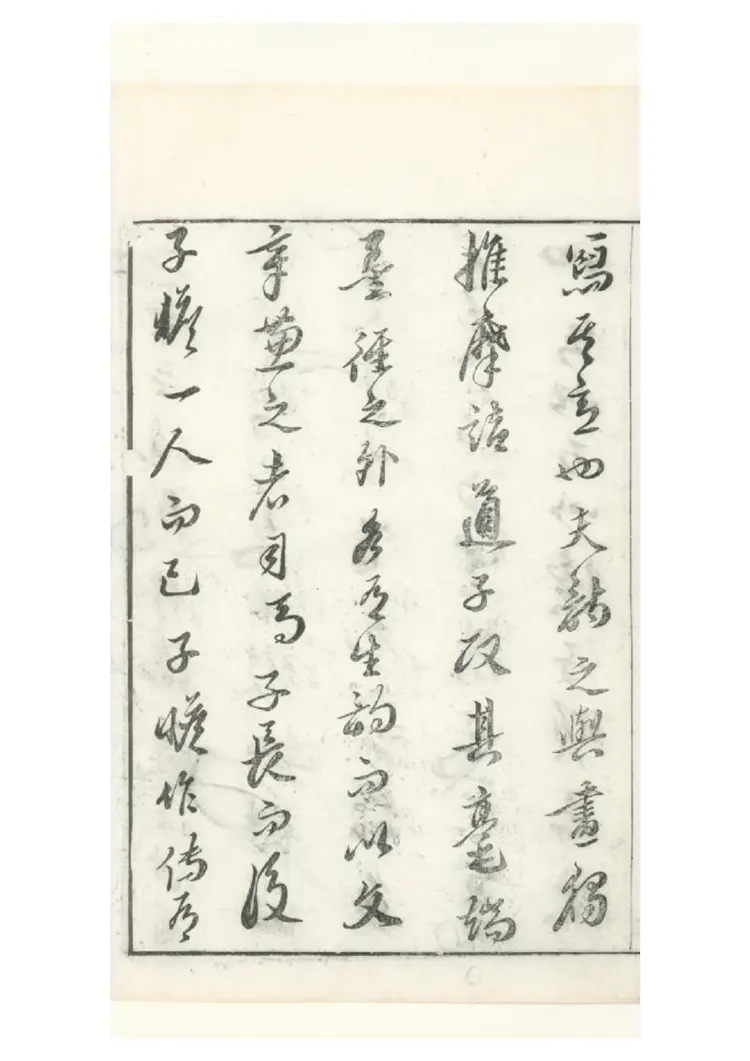 寫其意也夫融之與畫稱
推摩詰道子政其毫端
墨徑之外各有生韵而以文
章兼之者司馬子長而後
子瞻一人而已子瞻作傳有